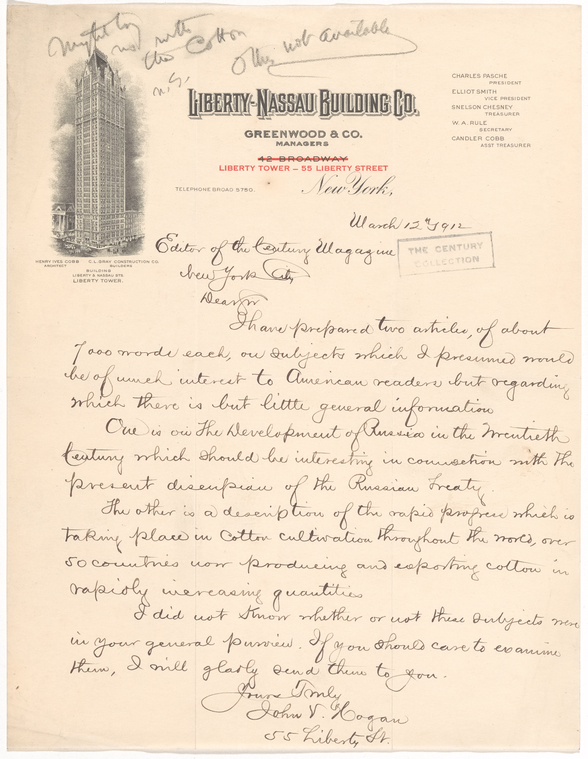 Might try
not with
the Cotton
n.g.
Other not available
LIBERTY-NASSAU BUILDING CO.
GREENWOOD & CO.
MANAGERS
42 BROADWAY
LIBERTY TOWER – 55 LIBERTY STREET
TELEPHONE BROAD 5780.
New York,
CHARLES PASCHE
PRESIDENT
ELLIOT SMITH
VICE PRESIDENT
SNELSON CHESNEY
TREASURER
W. A. RULE
SECRETARY
CANDLER COBB
ASST TREASURER
HENRY IVES COBB
ARCHITECT
C. L. GRAY CONSTRUCTION CO.
BUILDERS
BUILDING
LIBERTY & NASSAU STS
LIBERTY TOWER.
March 12th 1912
THE CENTURY
COLLECTION
Editor of the Century Magazine
New York City
Dear Sir
I have prepared two articles, of about
7000 words each, on subjects which I presumed would
be of much interest to American readers but regarding
which there is but little general information
One is on The Development of Russia in the Twentieth
Century which should be interesting in connection with the
present discussion of the Russian Treaty.
The other is a description of the rapid progress which is
taking place in Cotton cultivation throughout the world, over
50 countries now producing and exporting cotton in
rapidly increasing quantities
I did not know whether or not these subjects were
in your general purview. If you should care to examine
them, I will gladly send them to you.
Yours Truly
John V. Hogan
55 Liberty St.